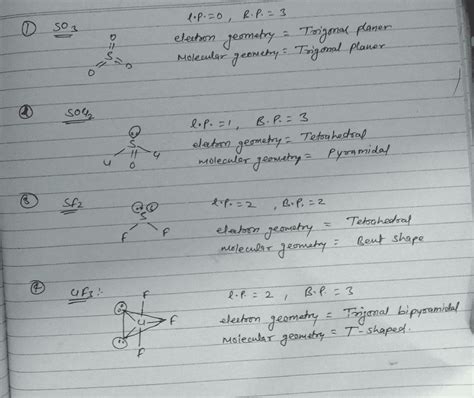 ① SO3
l.P.=0, B.P.=3
electron geometry = Trigonal planer
Molecular geometry = Trigonal planer
O
S
O O
② SOCl2
l.P.=1, B.P.=3
electron geometry = Tetrahedral
molecular geometry = Pyramidal
S
Cl Cl
O
③ Sf2
l.P.=2, B.P.=2
electron geometry = Tetrahedral
molecular geometry = Bent shape
S
F F
④ ClF3:-
l.P.=2, B.P.=3
electron geometry = Trigonal bipyramidal
Molecular geometry = T-shaped.
F
Cl F
F